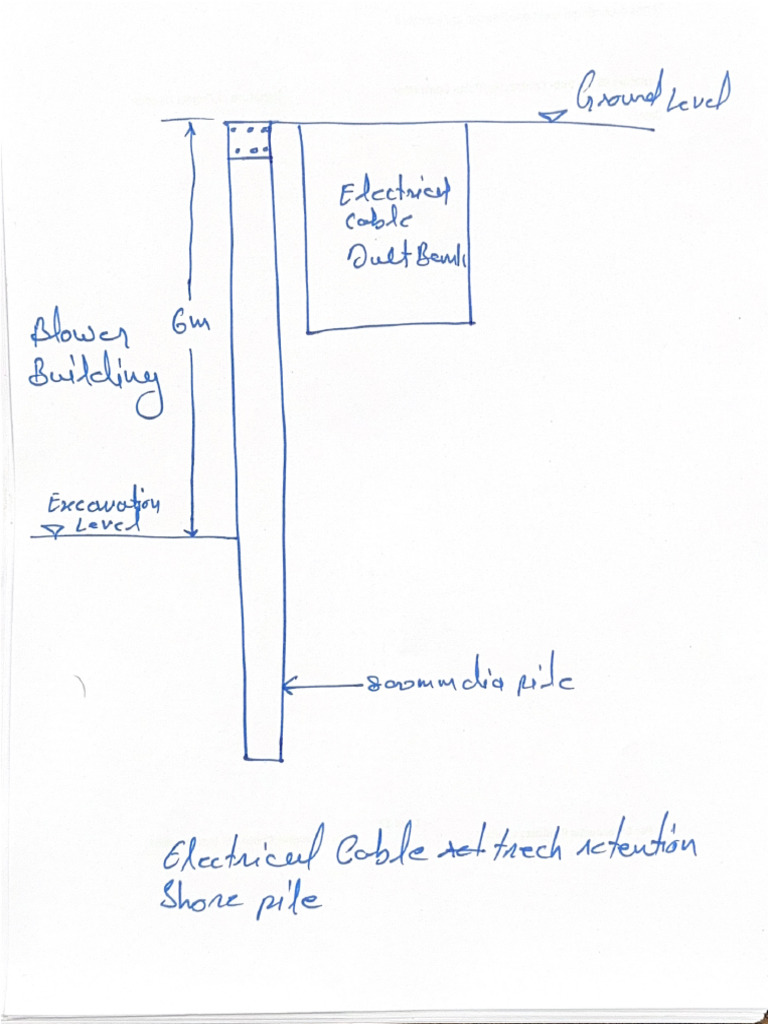 Ground Level
Electrical
Cable
Duct Bank
6m
Blower
Building
Excavation
Level
500mm dia pile
Electrical Cable trech retention
Shore pile